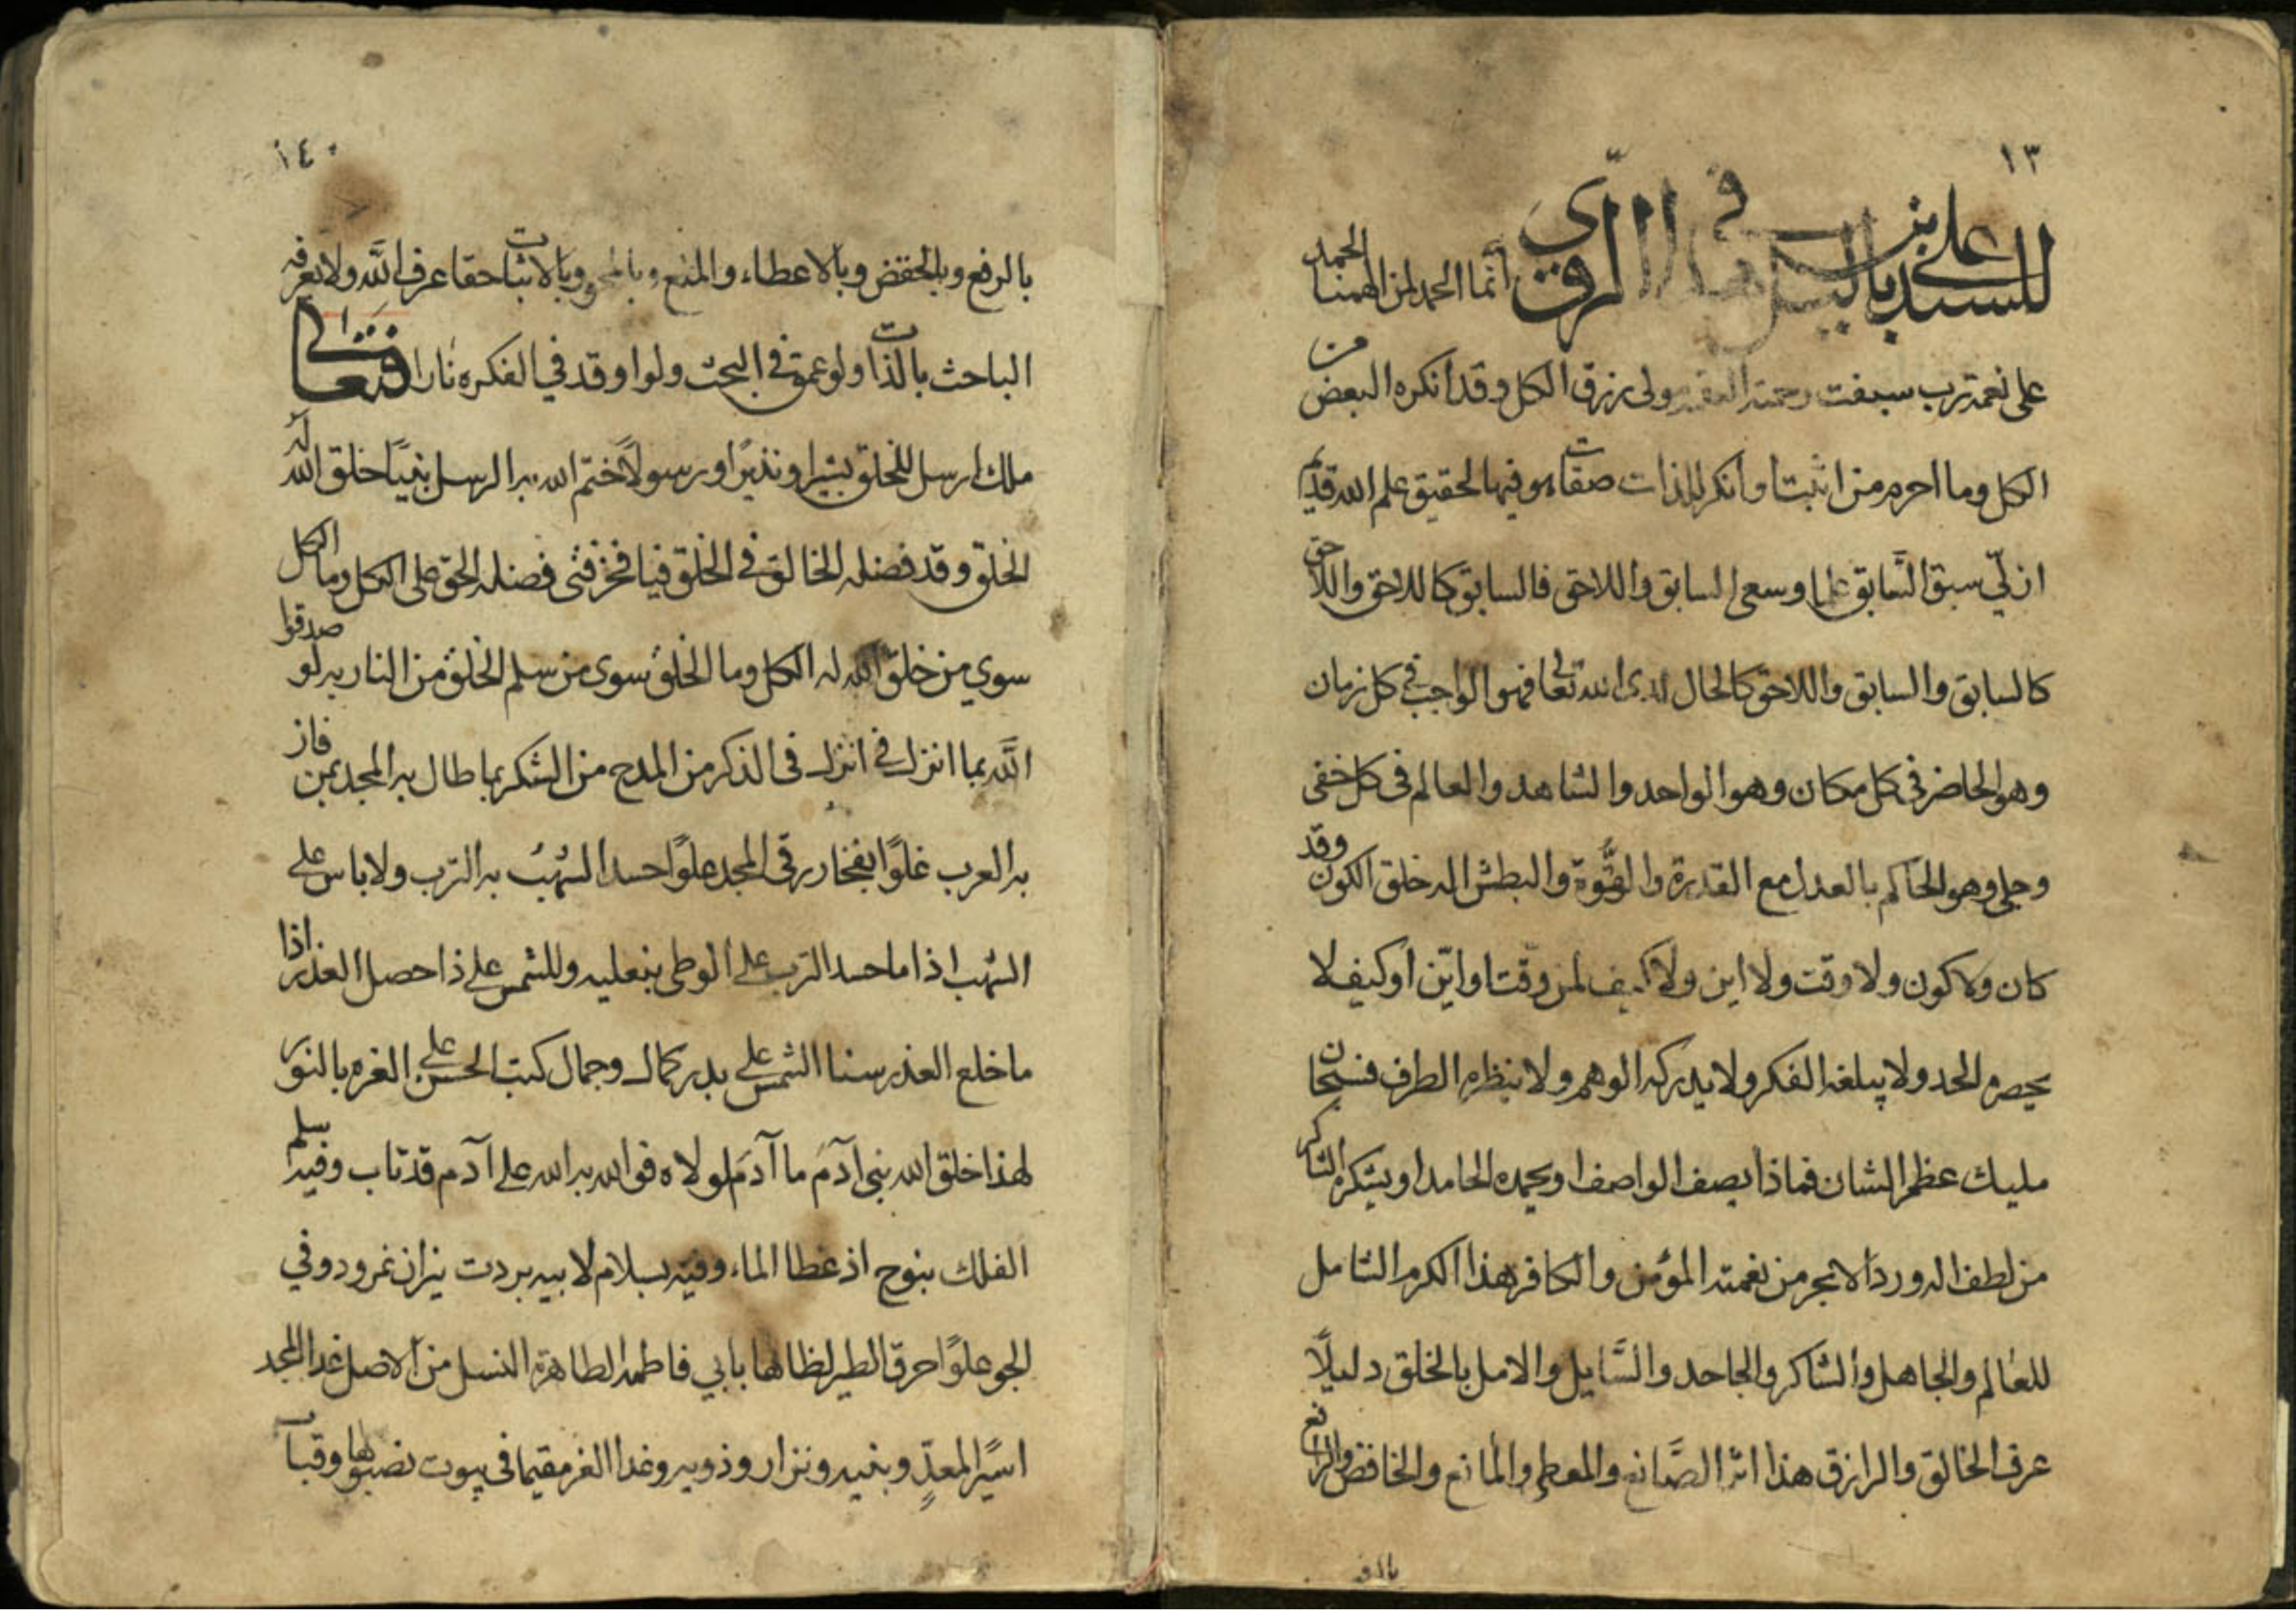 ١٣
للسيد علي بن باليل في هذا الروي انما الحمد لمن الهمنا الحمد
على نعمة رب سبقت رحمته ولى برزق الكل وقد انكره البعض من
الكل وما احرم من اثبت او انكر للذات صفات هو فيها لحقيق علم الله قديم
ازليّ سبق السَّابق علما وسعى السابق واللاحق فالسابق كاللاحق واللاحق
كالسابق والسابق واللاحق كالحال لدى الله تعالى فهو الواجب في كل زمان
وهو الحاضر في كل مكان وهو الواحد والشاهد والعالم في كل خفى
وجلي وهو الحاكم بالعدل مع القدرة والقوَّة والبطش اله خلق الكون وقد
كان ولا كون ولا وقت ولا اين ولا كيف لمن وقتا واين او كيف لا
يحصره الحد ولا يبلغه الفكر ولا يدركه الوهم ولا ينظره الطرف فسبحان
مليك عظم الشان فماذا يصف الواصف او يحمده الحامد او يشكره الشاكر
من لطف اله ورد الابحر من نعمته المؤمن والكافر هذا الكرم الشامل
للعالم والجاهل والشاكر والجاحد والسَّايل والامل بالخلق دليلًا
عرف الخالق والرازق هذا اثر الصَّانع والمعطي والمانع والخافض والرافع
بالرفع
١٤٠
بالرفع وبالخفض وبالاعطاء والمنع وبالمحو وبالاثبات حقا عرف اللَّه ولا يعرفه
الباحث بالذات ولو عمق في البحث ولو اوقد في الفكره نارا فتعالى
ملك ارسل للخلق بشيرا ونذيرًا ورسولًا ختم الله به الرسل نبيًا خلق الله له
الخلق وقد فضله الخالق في الخلق فيا فخر فتى فضله الحق على الكل وما الكل
سوي من خلق الله له الكل وما الخلق سوى من سلم الخلق من النار به لو صدقوا
اللَّه بما انزل في انزل فى الذكر من المدح من الشكر بما طال به المجد بمن فاز
به العرب غلوًا بفخار رقى المجد علوًا حسد الشهب به الترب ولا باس على
الشهب اذا ما حسد الترب على الوطى بنعليه وللشمس على ذا حصل العذر اذا
ما خلع العذر سنا الشمس على بدر كمال وجمال كتب الحسن على الغره بالنور
لهذا خلق الله بنى آدَمَ ما آدَمَ لولاه فو الله به الله على آدم قد تاب وفيه سلم
الفلك بنوح اذ غطا الماء وفيه بسلام لابيه بردت نيران نمرود وفي
الجو علوًا حرق الطير لظا لها بابي فاطمه الطاهرة النسل من الاصل غدا المجد
اسيرًا لمعدٍّ وبنيه ونزار وذويه وغدا الفخر مقيما فى بيوت نصبوها وقباب